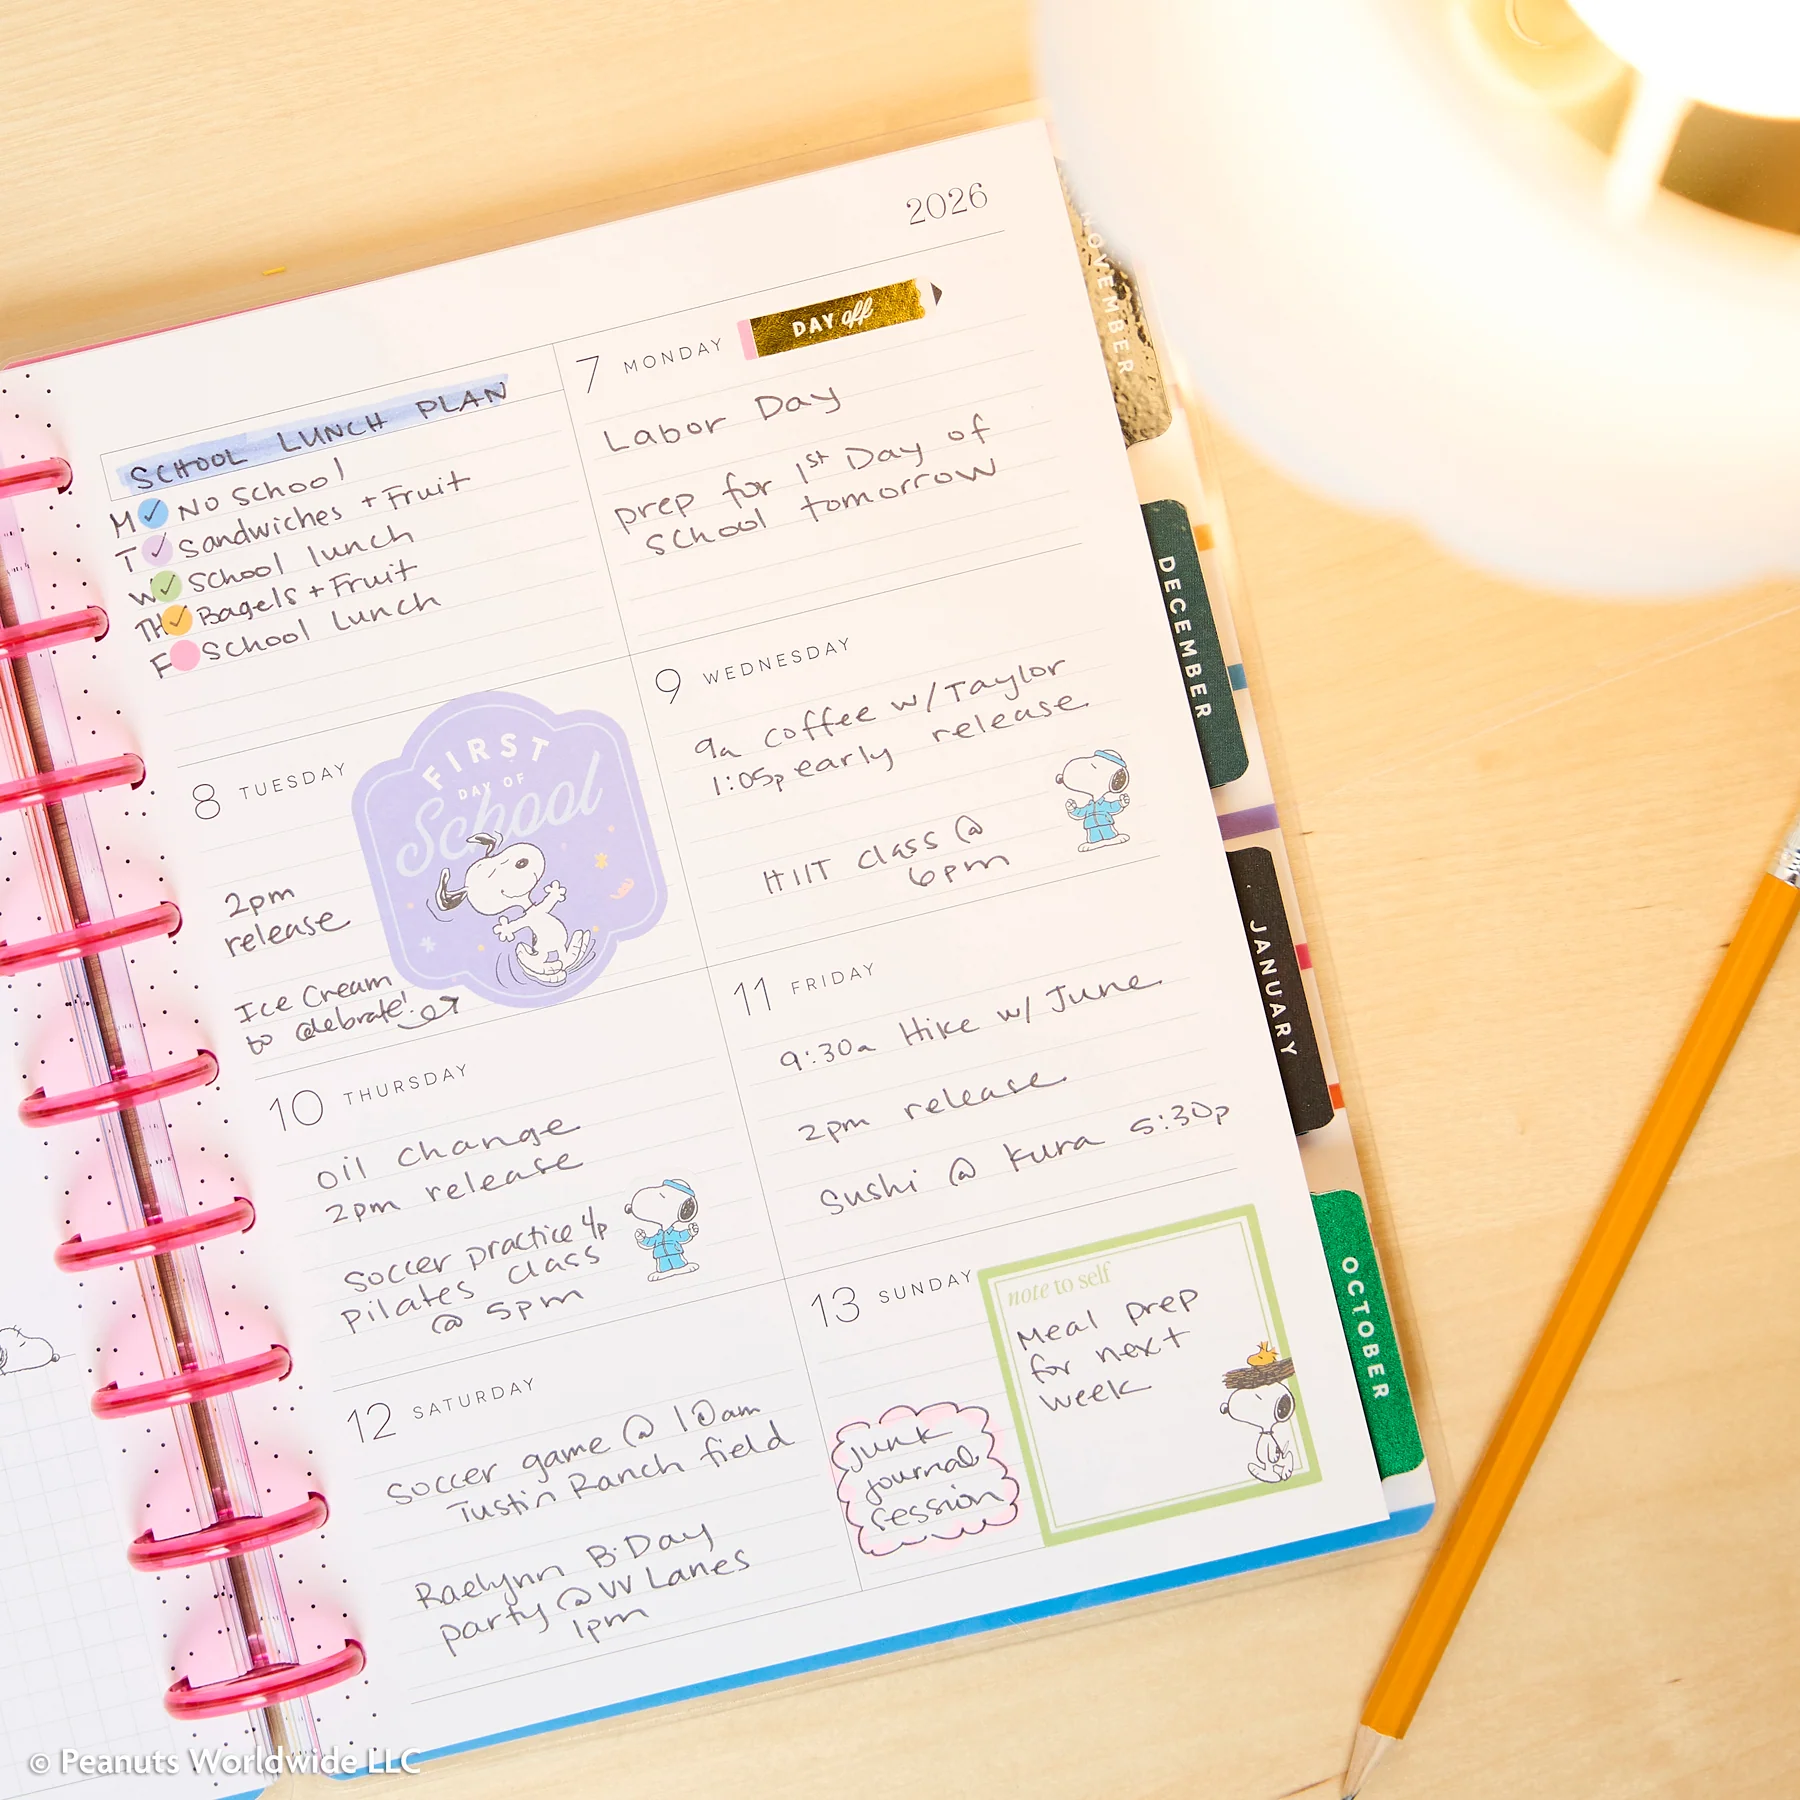 2026
SCHOOL LUNCH PLAN
M No School
T Sandwiches + Fruit
W School lunch
TH Bagels + Fruit
F School Lunch
7 MONDAY
DAY off
Labor Day
prep for 1st Day of
school tomorrow
8 TUESDAY
FIRST
DAY OF
School
2pm
release
Ice Cream
to celebrate!
9 WEDNESDAY
9a coffee w/Taylor
1:05p early release
HIIT class @
6pm
10 THURSDAY
oil change
2pm release
Soccer practice 4p
Pilates class
@ 5pm
11 FRIDAY
9:30a Hike w/ June
2pm release
Sushi @ Kura 5:30p
12 SATURDAY
Soccer game @ 10am
Tustin Ranch field
Raelynn B-Day
party @ VV Lanes
1pm
13 SUNDAY
Junk
journal
session
note to self
Meal prep
for next
week
NOVEMBER
DECEMBER
JANUARY
OCTOBER
© Peanuts Worldwide LLC